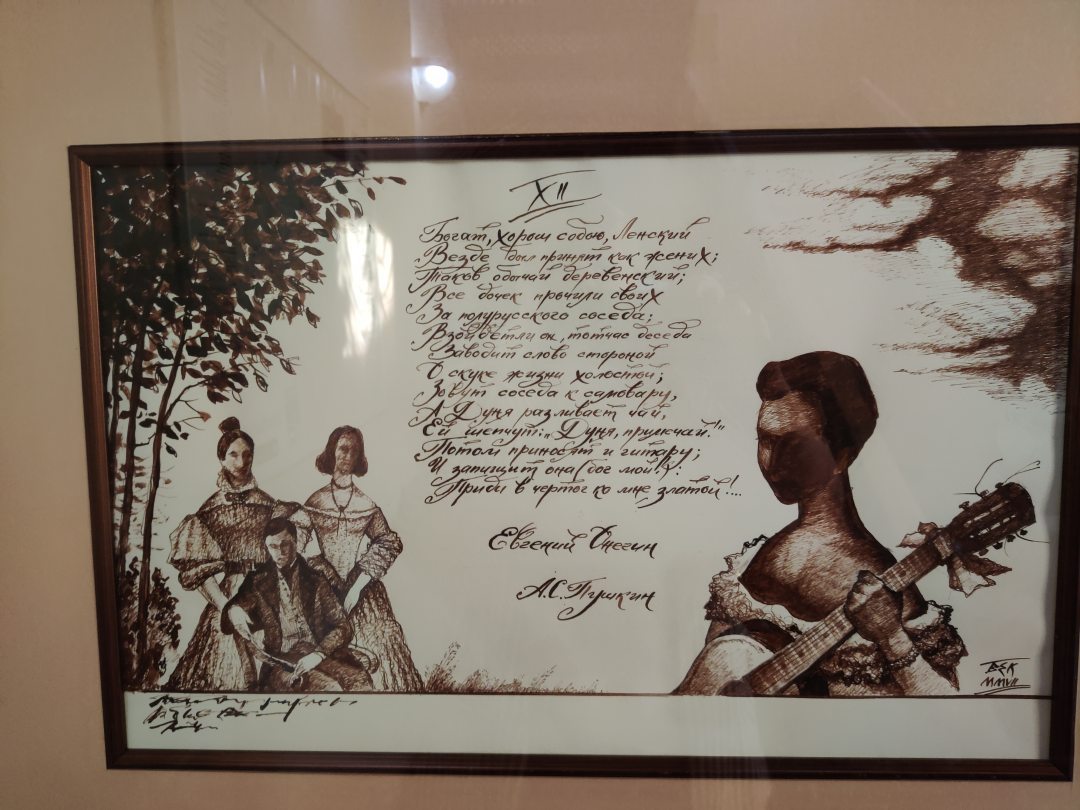 XII
Богат, хорош собою, Ленский
Везде был принят как жених;
Таков обычай деревенский;
Все дочек прочили своих
За полурусского соседа;
Взойдет ли он, тотчас беседа
Заводит слово стороной
О скуке жизни холостой;
Зовут соседа к самовару,
А Дуня разливает чай,
Ей шепчут: „Дуня, примечай!"
Потом приносят и гитару;
И запищит она (бог мой!):
Приди в чертог ко мне златой!...
Евгений Онегин
А.С. Пушкин
ВЕК
MMVII